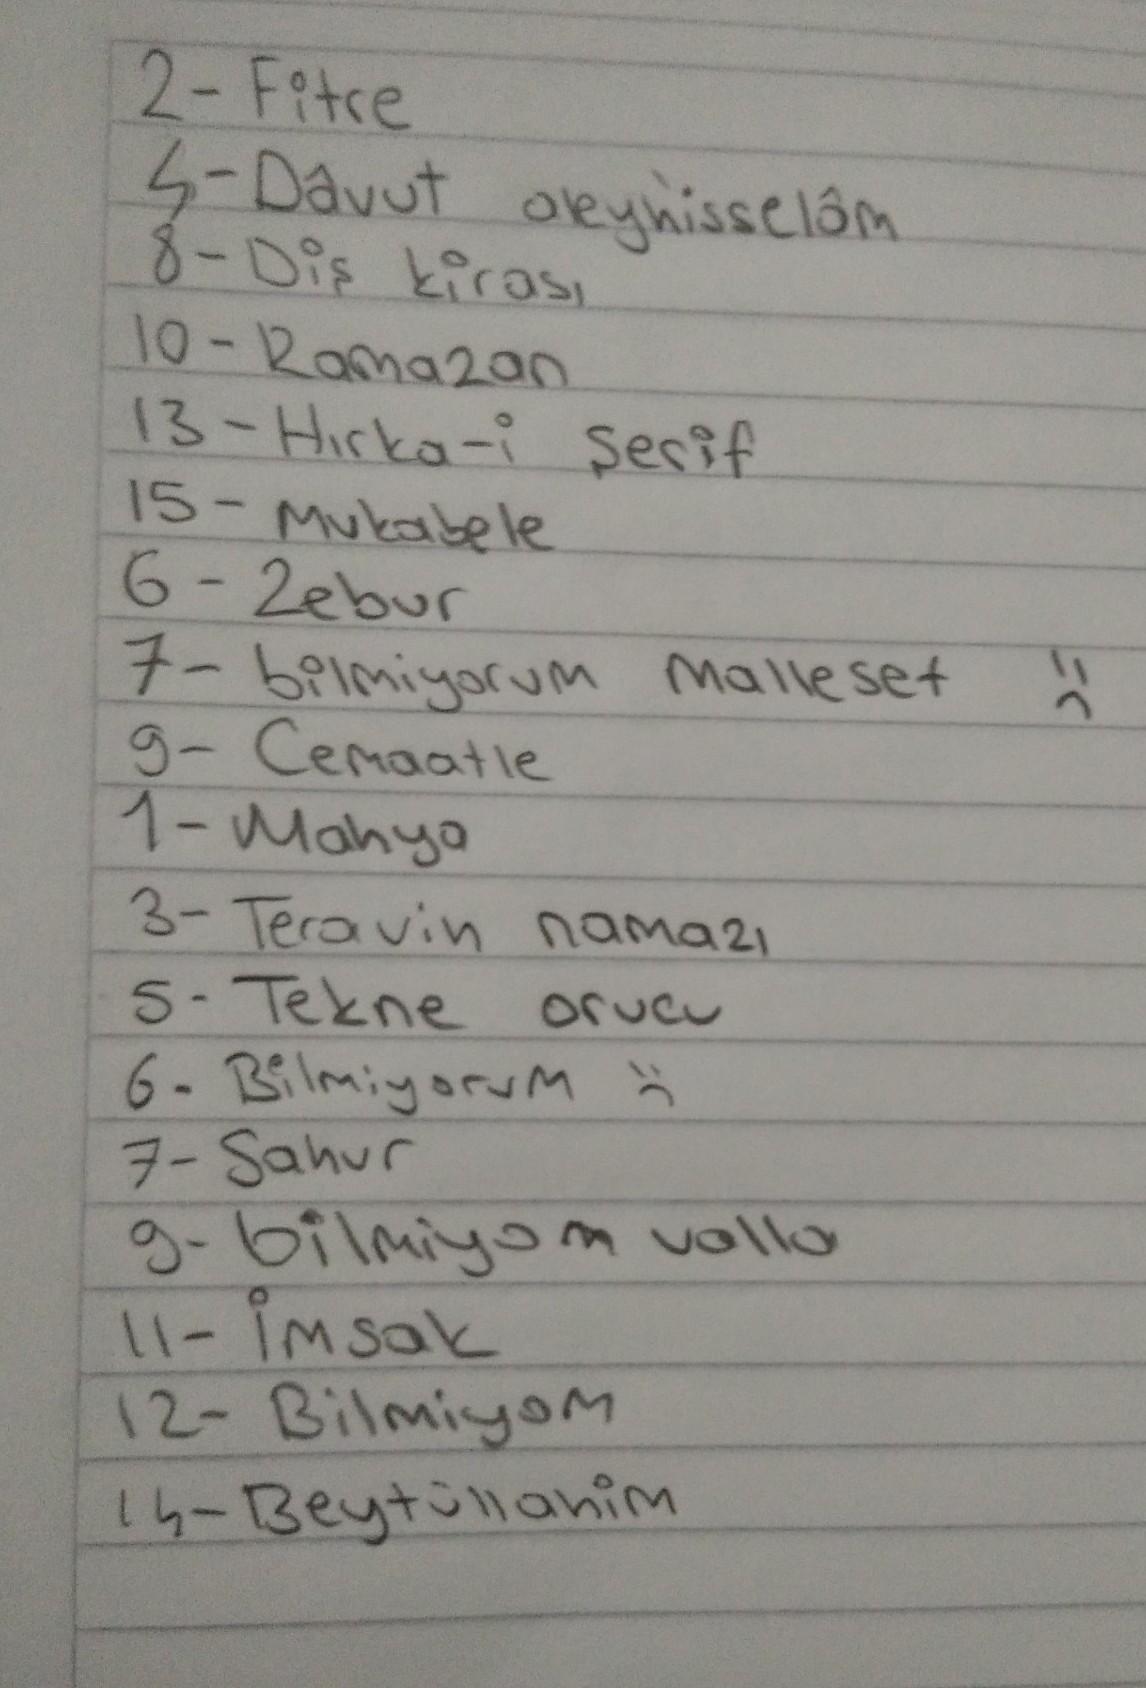 2- Fitre
4- Dâvut aleyhisselâm
8- Diş kirası
10- Ramazan
13- Hırka-i Şerif
15- Mukabele
6- Zebur
7- bilmiyorum malleset :(
9- Cemaatle
1- Mahya
3- Teravih namazı
5- Tekne orucu
6- Bilmiyorum :(
7- Sahur
9- bilmiyom valla
11- İmsak
12- Bilmiyom
14- Beytüllahim